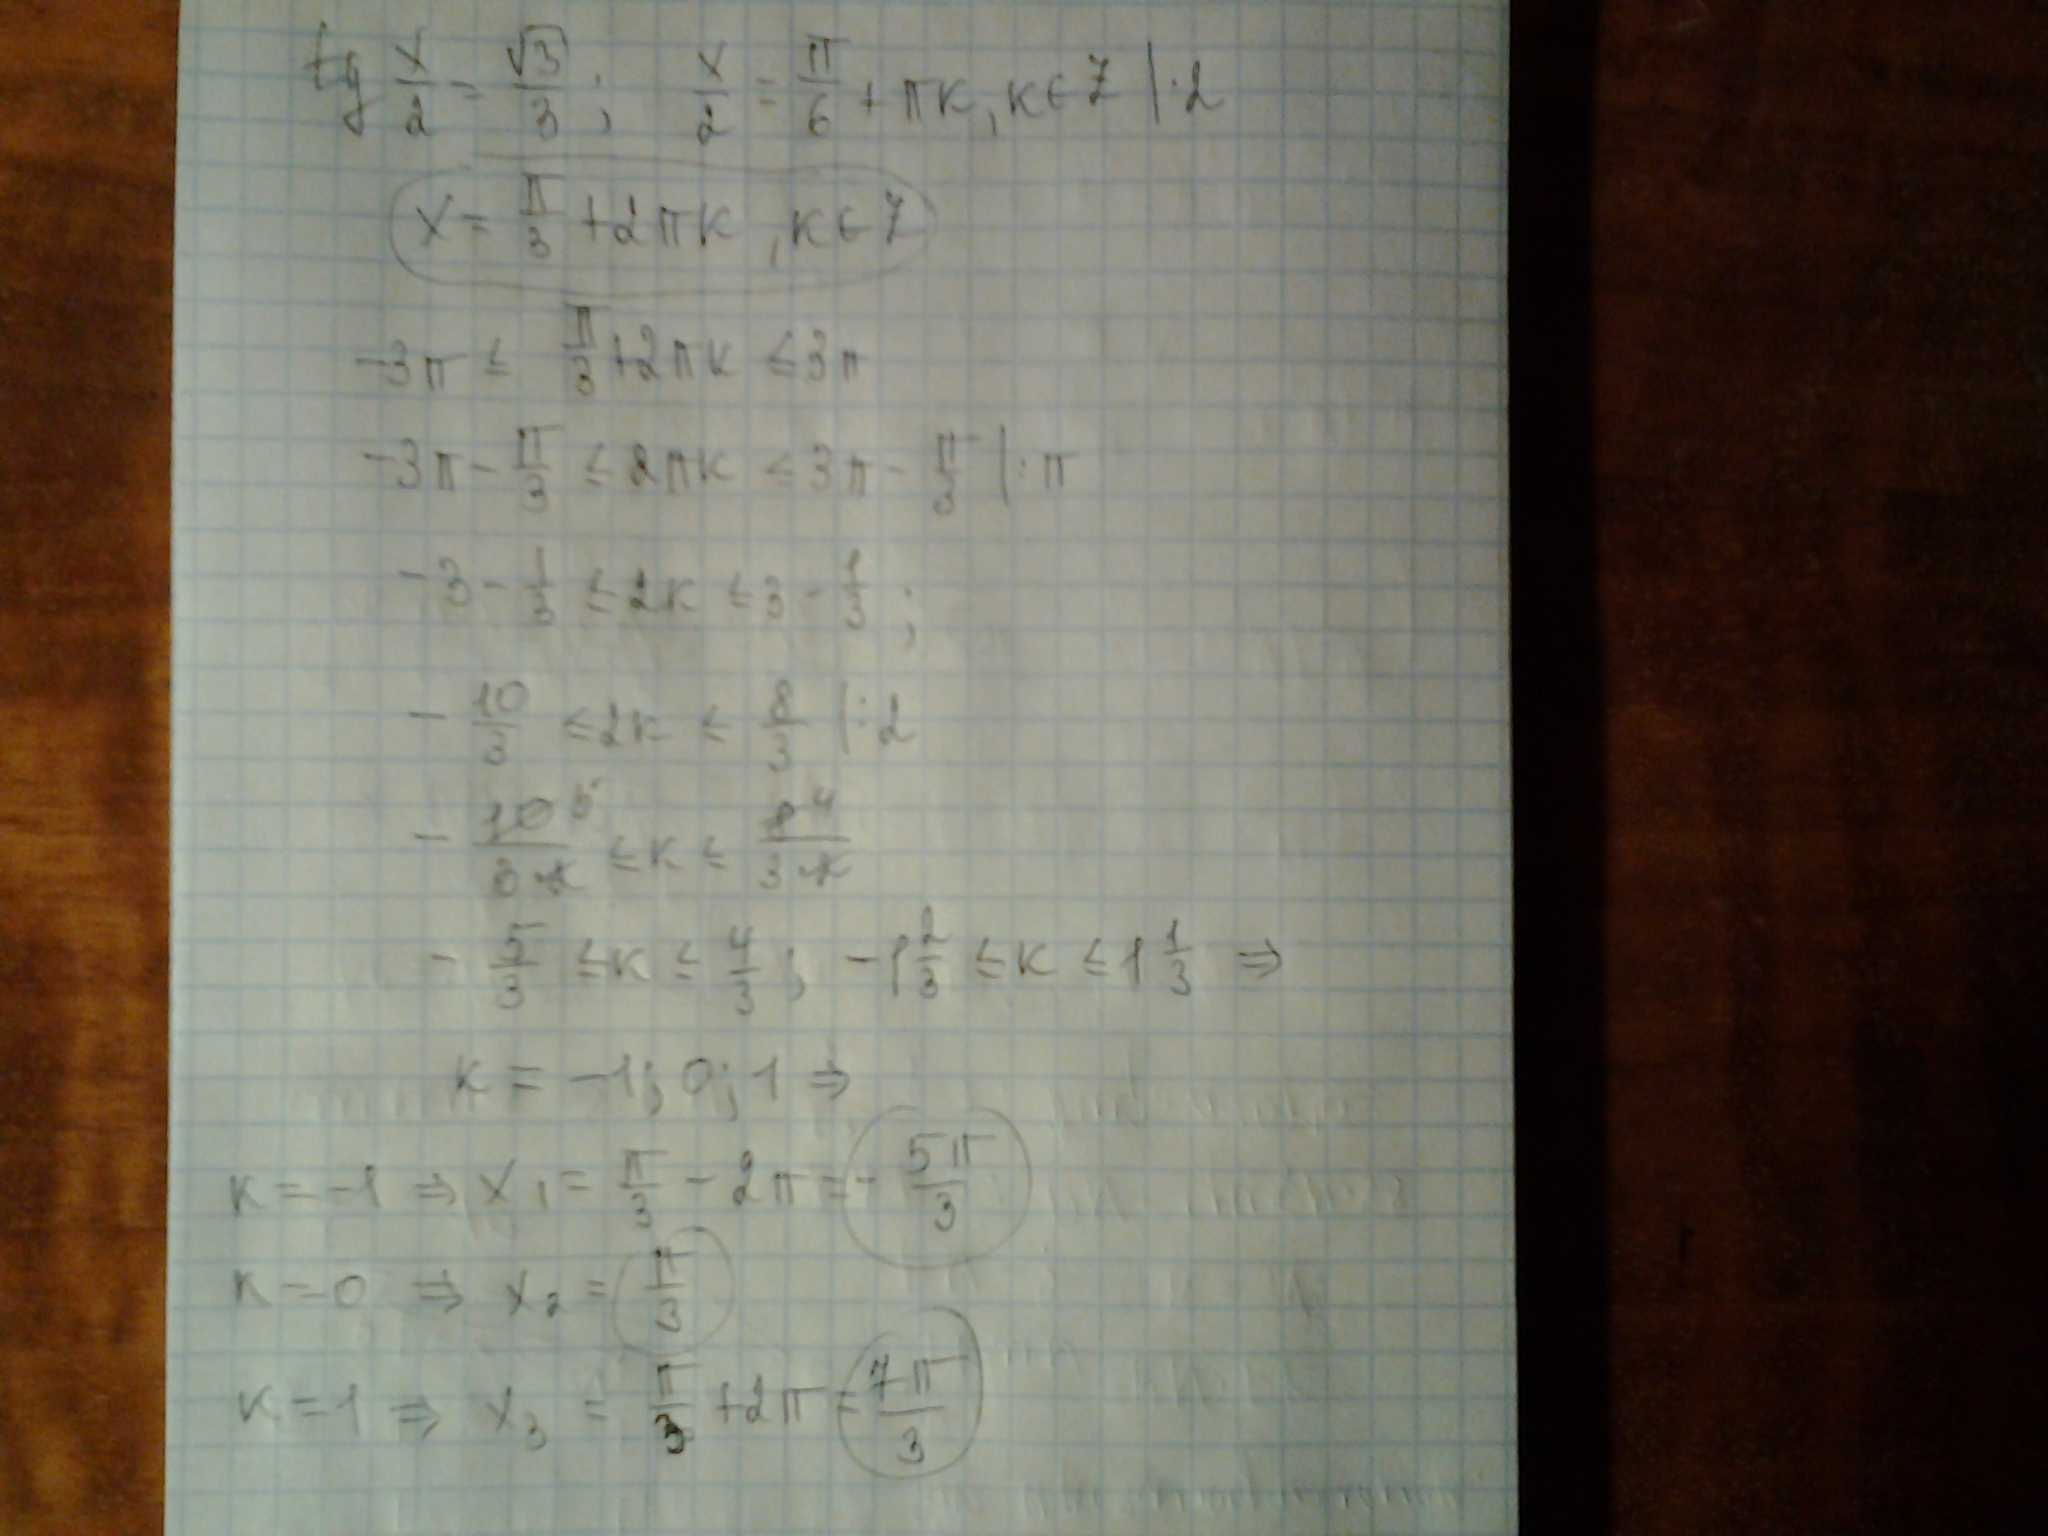 tg x/2 = √3/3; x/2 = π/6 + πк, к∈Z |·2
x = π/3 + 2πк, к∈Z
-3π ≤ π/3 + 2πк ≤ 3π
-3π - π/3 ≤ 2πк ≤ 3π - π/3 |:π
-3 - 1/3 ≤ 2к ≤ 3 - 1/3;
- 10/3 ≤ 2к ≤ 8/3 |:2
- 10 5/3·2 ≤ к ≤ 8 4/3·2
- 5/3 ≤ к ≤ 4/3; -1 2/3 ≤ к ≤ 1 1/3 ⇒
к = -1; 0; 1 ⇒
к = -1 ⇒ x₁ = π/3 - 2π = - 5π/3
к = 0 ⇒ x₂ = π/3
к = 1 ⇒ x₃ = π/3 + 2π = 7π/3